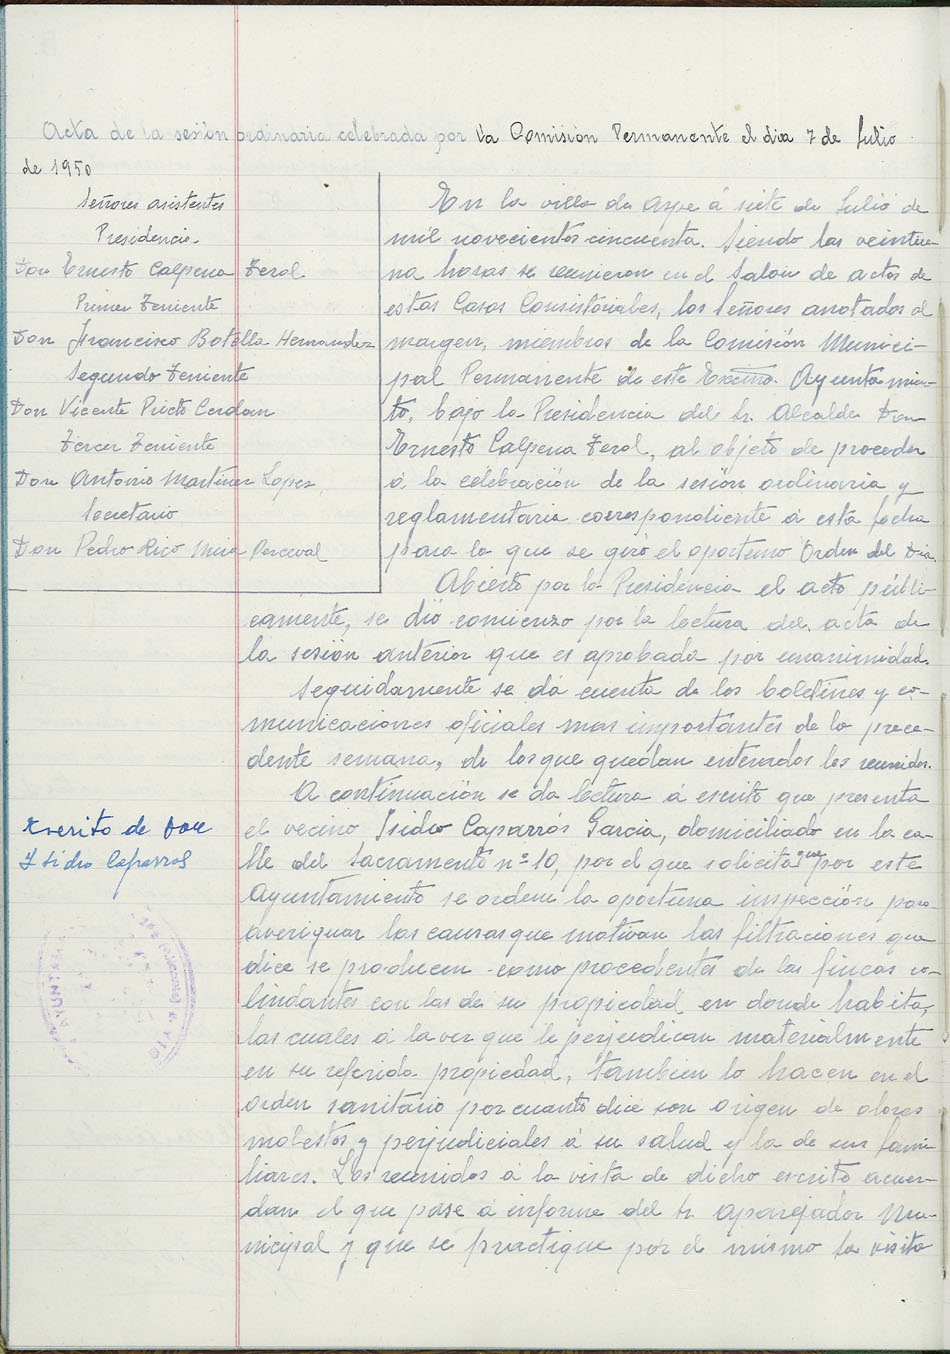 Acta de la sesión ordinaria celebrada por la Comisión Permanente el dia 7 de Julio
de 1950
Señores asistentes
Presidencia
Don Ernesto Calpena Ferol
Primer Teniente
Don Francisco Botella Hernandez
Segundo Teniente
Don Vicente Prieto Cerdan
Tercer Teniente
Don Antonio Martinez Lopez
Secretario
Don Pedro Rico Mira Perceval
En la villa de Aspe á siete de Julio de
mil novecientos cincuenta. Siendo las veintiu-
na horas se reunieron en el Salon de actos de
estas Casas Consistoriales, los Señores anotados al
margen, miembros de la Comisión Munici-
pal Permanente de este Excmo. Ayuntamien-
to, bajo la Presidencia del Sr. Alcalde Don
Ernesto Calpena Ferol, al objeto de proceder
á la celebración de la sesión ordinaria y
reglamentaria correspondiente á esta fecha
para la que se giró el oportuno Orden del Dia.
Abierto por la Presidencia el acto públi-
camente, se dió comienzo por la lectura del acta de
la sesión anterior que es aprobada por unanimidad.
Seguidamente se dá cuenta de los boletines y co-
municaciones oficiales mas importantes de la prece-
dente semana, de los que quedan enterados los reunidos.
A continuación se da lectura á escrito que presenta
el vecino Isidro Caparrós Garcia, domiciliado en la ca-
lle del Sacramento nº 10, por el que solicita que por este
Ayuntamiento se ordene la oportuna inspección para
averiguar las causas que motivan las filtraciones que
dice se producen como procedentes de las fincas co-
lindantes con las de su propiedad en donde habita,
las cuales á la vez que le perjudican materialmente
en su referida propiedad, tambien lo hacen en el
orden sanitario por cuanto dice son origen de olores
molestos y perjudiciales á su salud y la de sus fami-
liares. Los reunidos á la vista de dicho escrito acuer-
dan el que pase á informe del Sr. Aparejador Mu-
nicipal y que se practique por el mismo la visita
Escrito de Don
Isidro Caparros